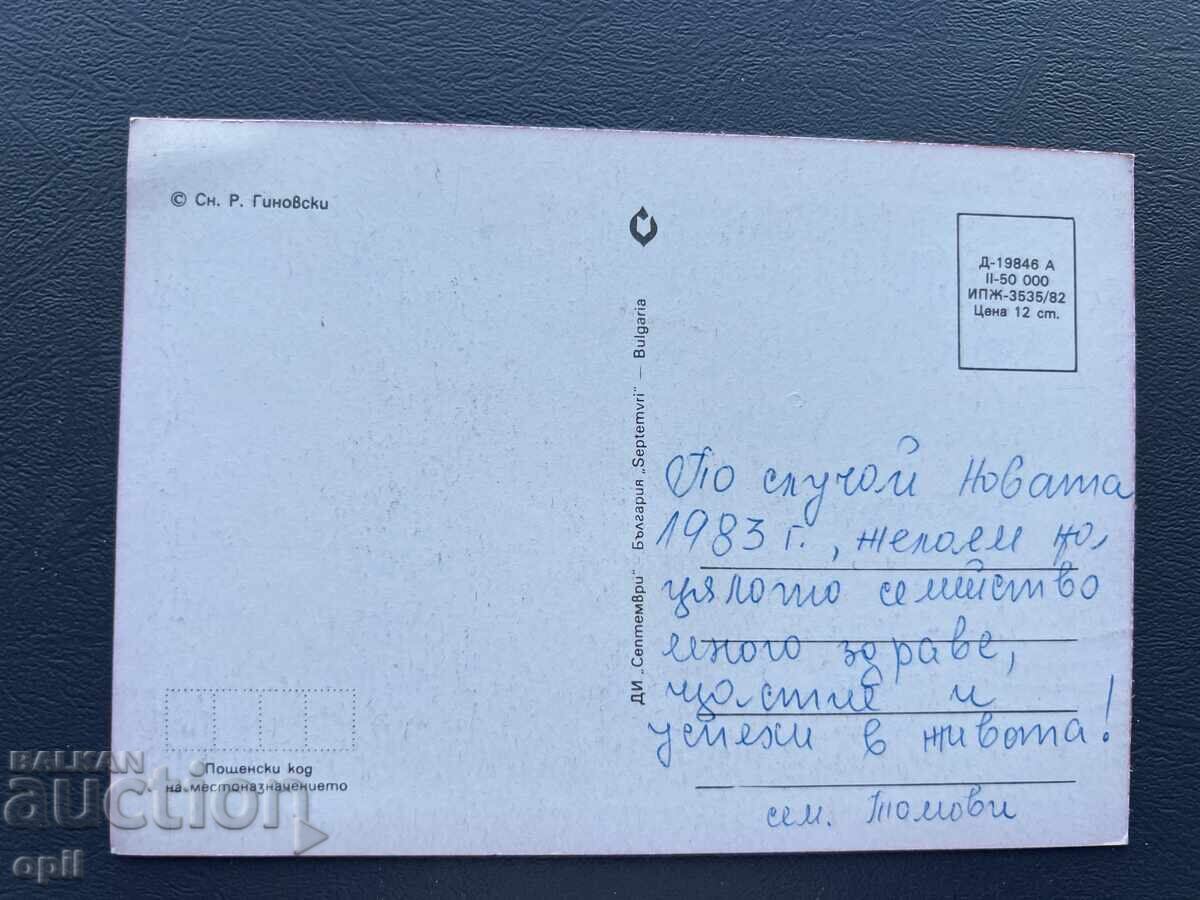 © Сн. Р. Гиновски
Д-19846 А
II-50 000
ИПЖ-3535/82
Цена 12 ст.
ДИ „Септември“ — България „Septemvri“ — Bulgaria
По случай Новата
1983 г., желаем на
цялото семейство
много здраве,
щастие и
успехи в живота!
сем. Томови
Пощенски код
на местоназначението
BALKAN
auction
opil